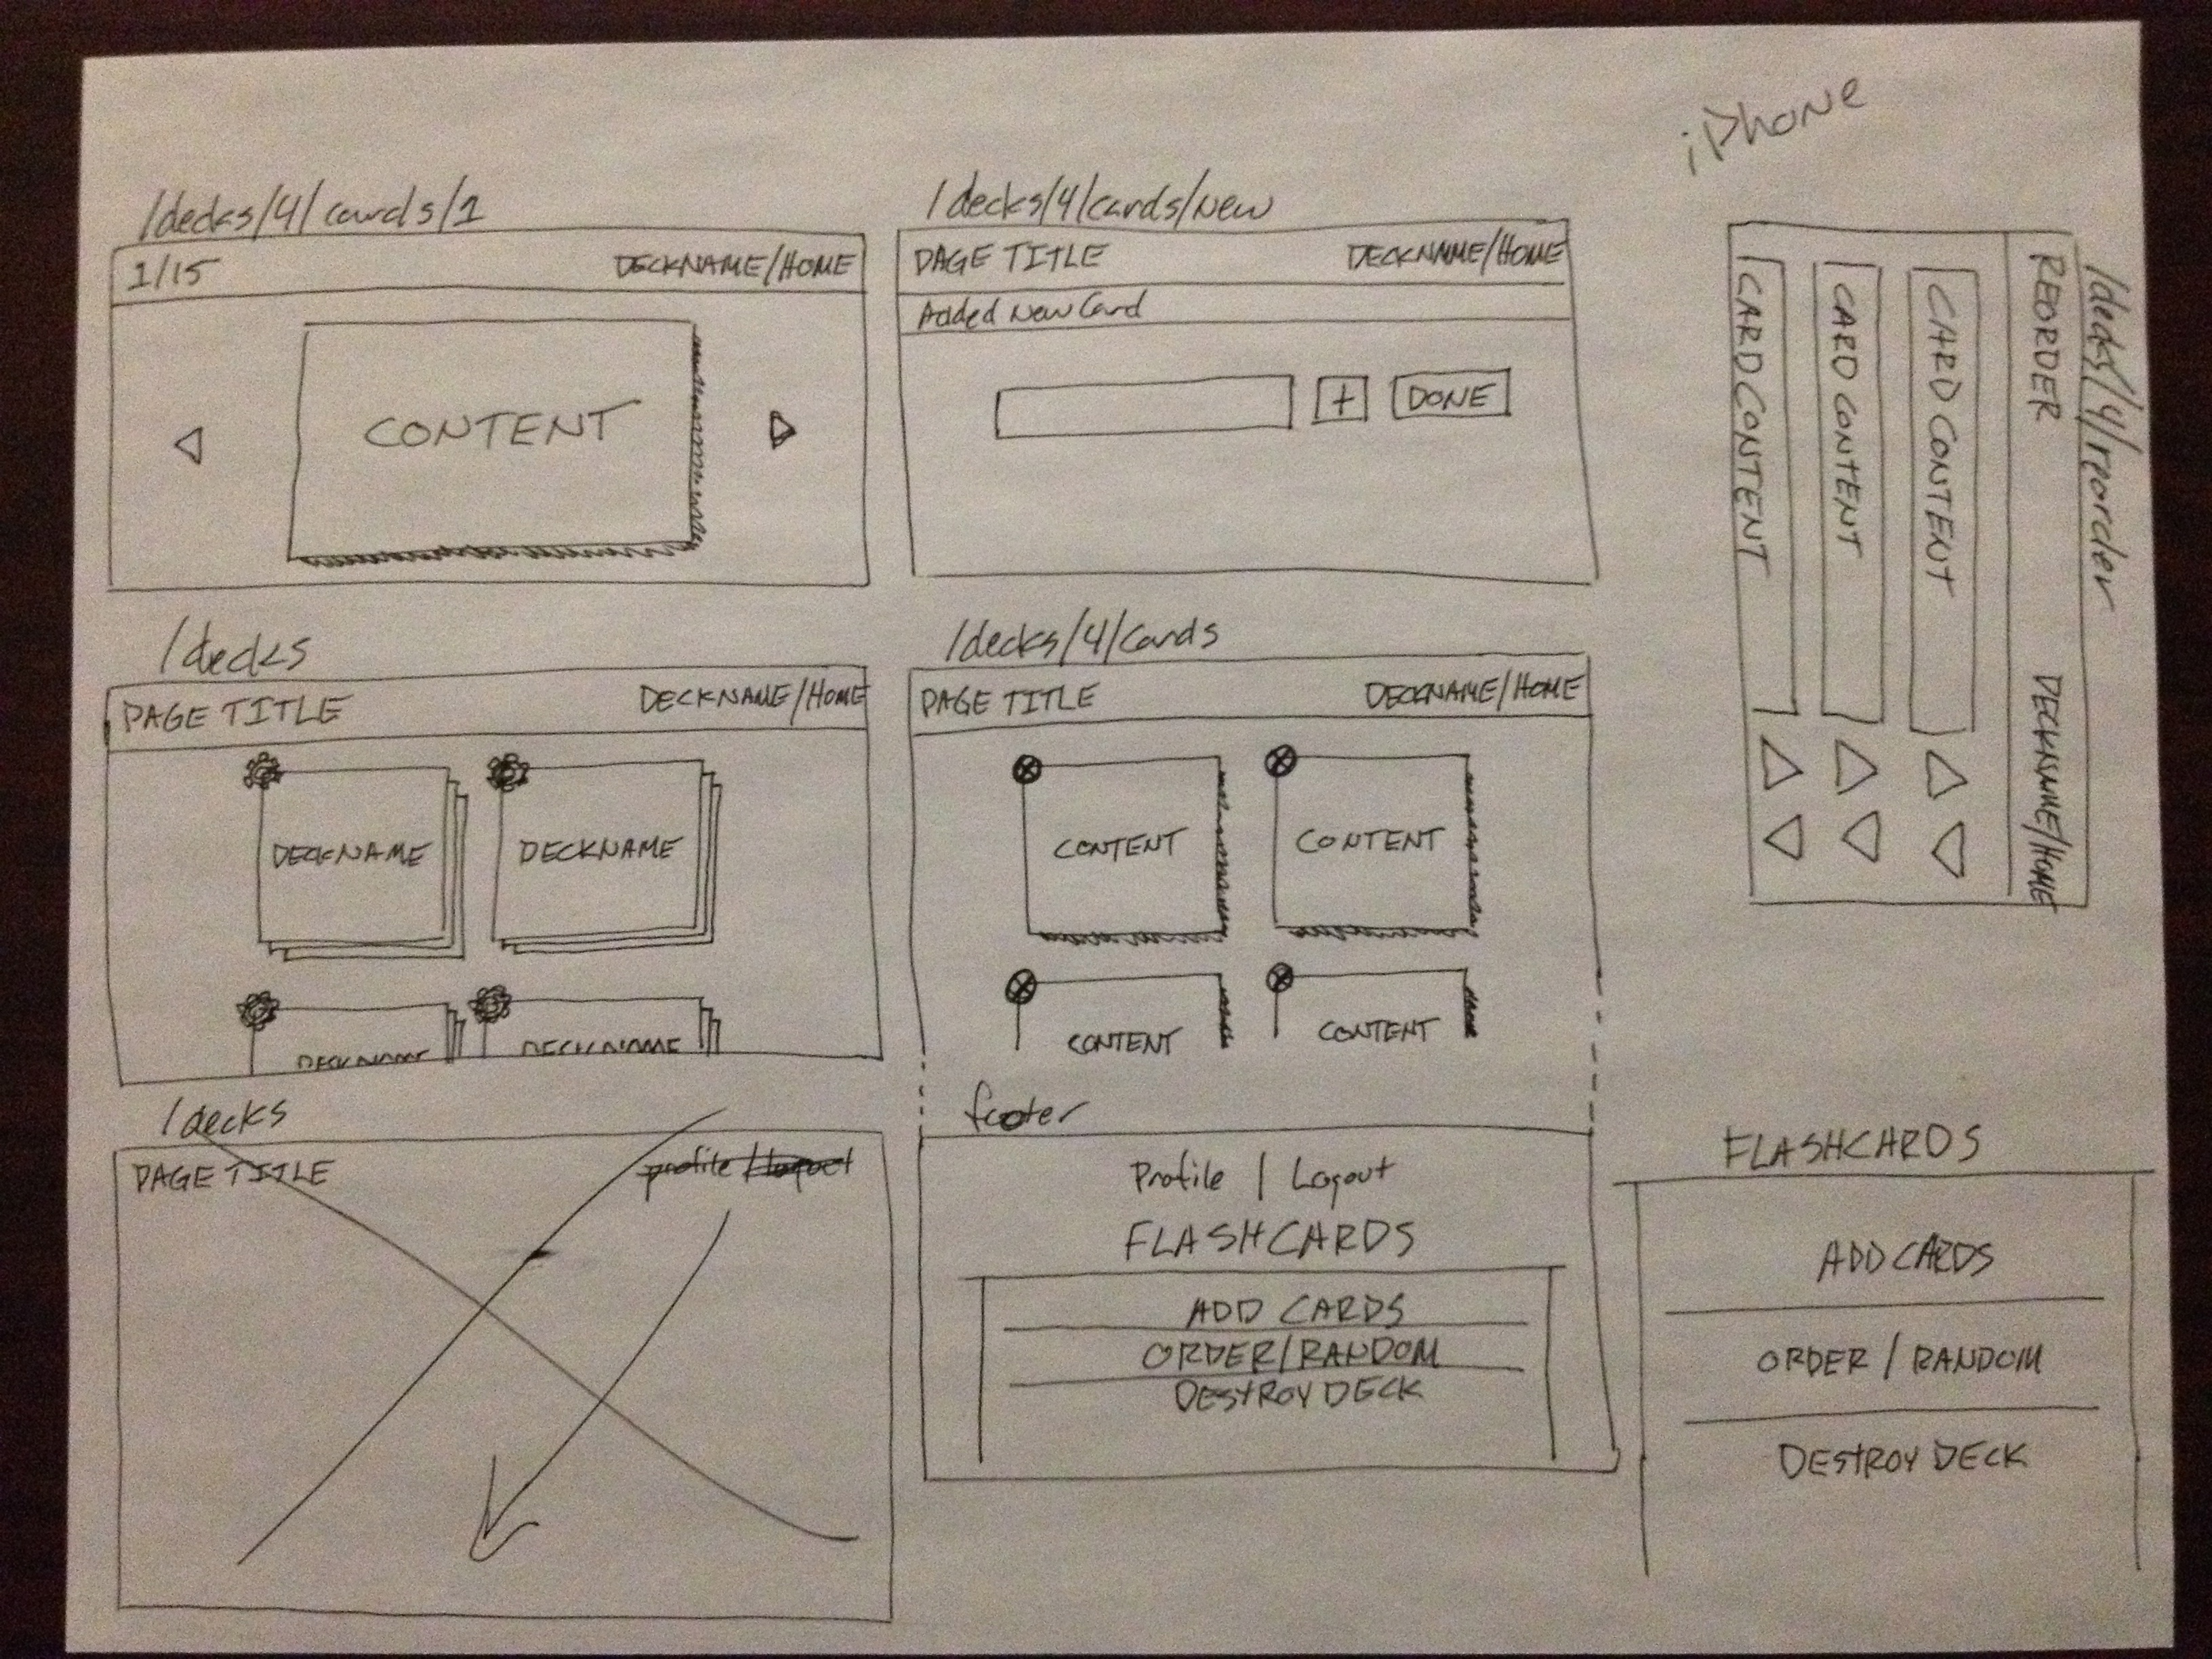 iPhone
/decks/4/cards/1
1/15 DECKNAME/HOME
CONTENT
/decks/4/cards/new
PAGE TITLE DECKNAME/HOME
Added New Card
+ DONE
/decks/4/reorder
REORDER DECKNAME/HOME
CARD CONTENT
CARD CONTENT
CARD CONTENT
/decks
PAGE TITLE DECKNAME/HOME
DECKNAME DECKNAME
DECKNAME DECKNAME
/decks/4/cards
PAGE TITLE DECKNAME/HOME
CONTENT CONTENT
CONTENT CONTENT
/decks
PAGE TITLE profile/logout
footer
Profile | Logout
FLASHCARDS
ADD CARDS
ORDER/RANDOM
DESTROY DECK
FLASHCARDS
ADD CARDS
ORDER / RANDOM
DESTROY DECK